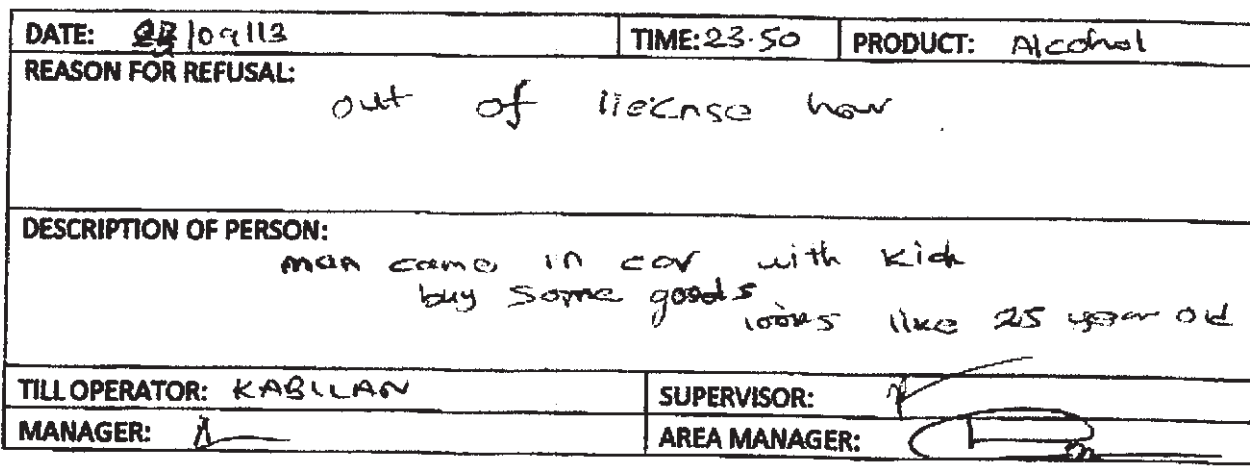 DATE: /09/13 TIME: 23.50 PRODUCT: Alcohol
REASON FOR REFUSAL:
out of license hour
DESCRIPTION OF PERSON:
man came in car with
buy some goods
looks like 25 year old
TILL OPERATOR: KABILAN SUPERVISOR:
MANAGER: AREA MANAGER: